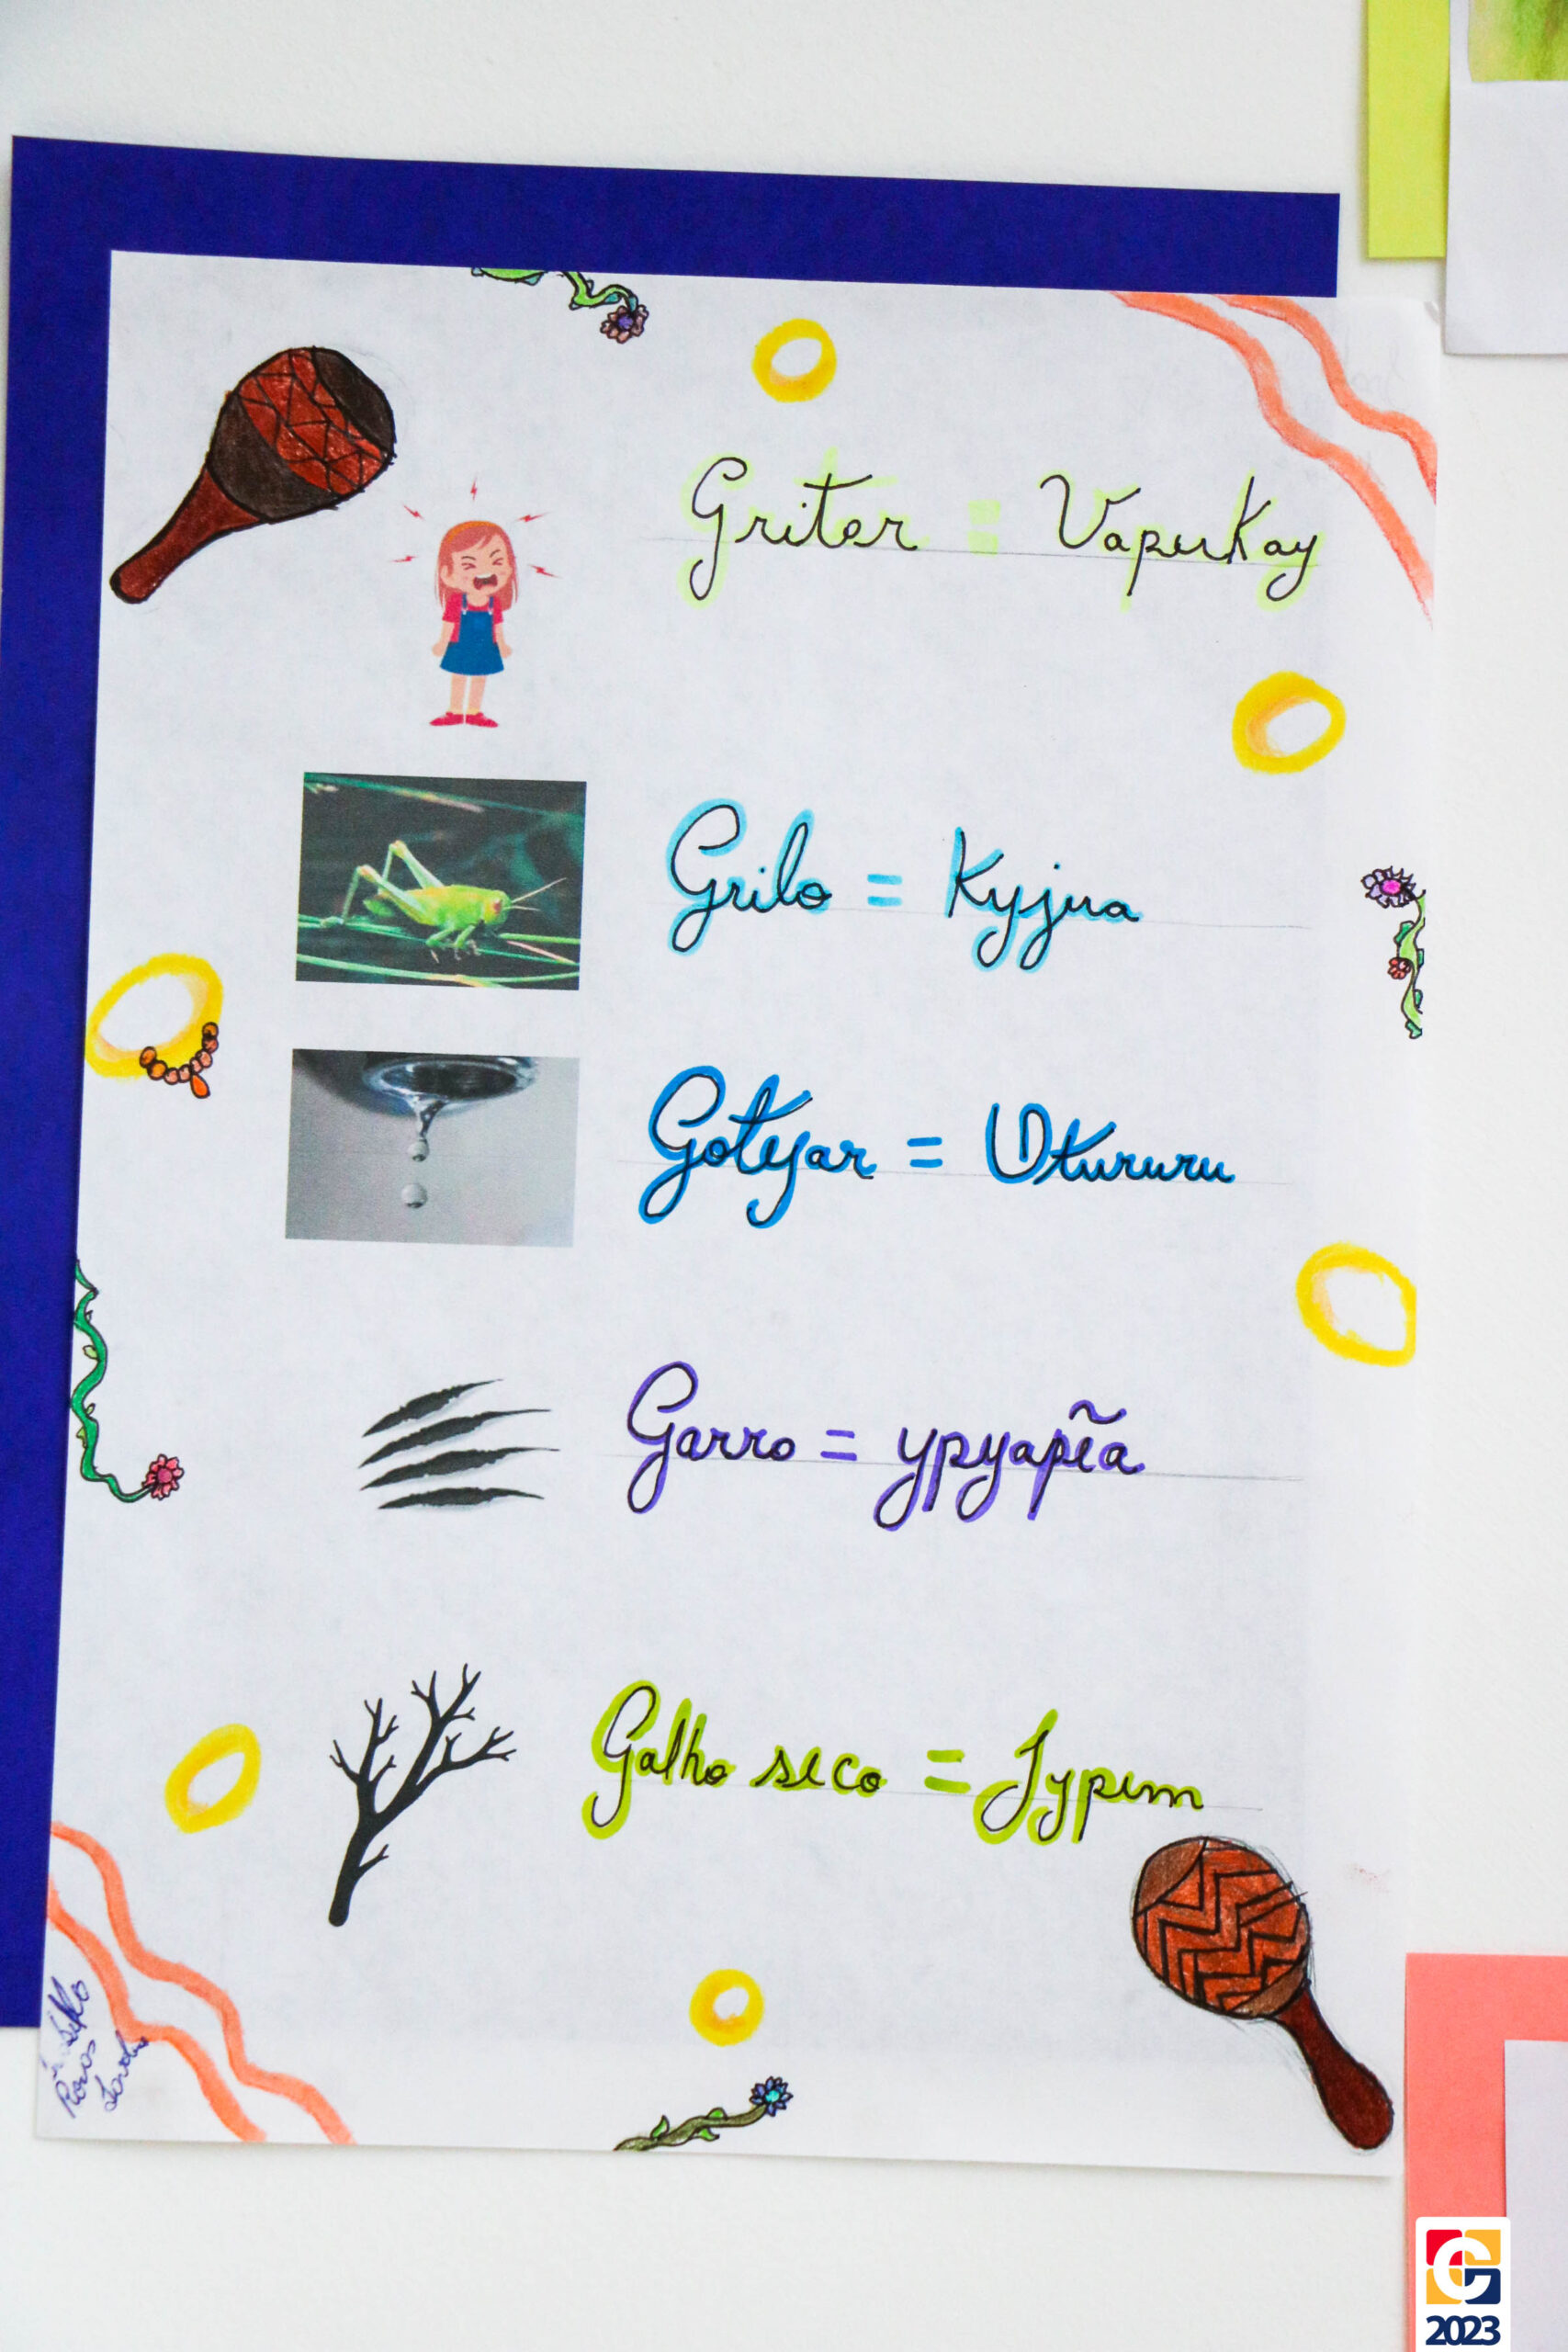 Gritar = Vapukay
Grilo = Kyjua
Gotejar = Utururu
Garra = ypyapẽa
Galho seco = Jypem
2023